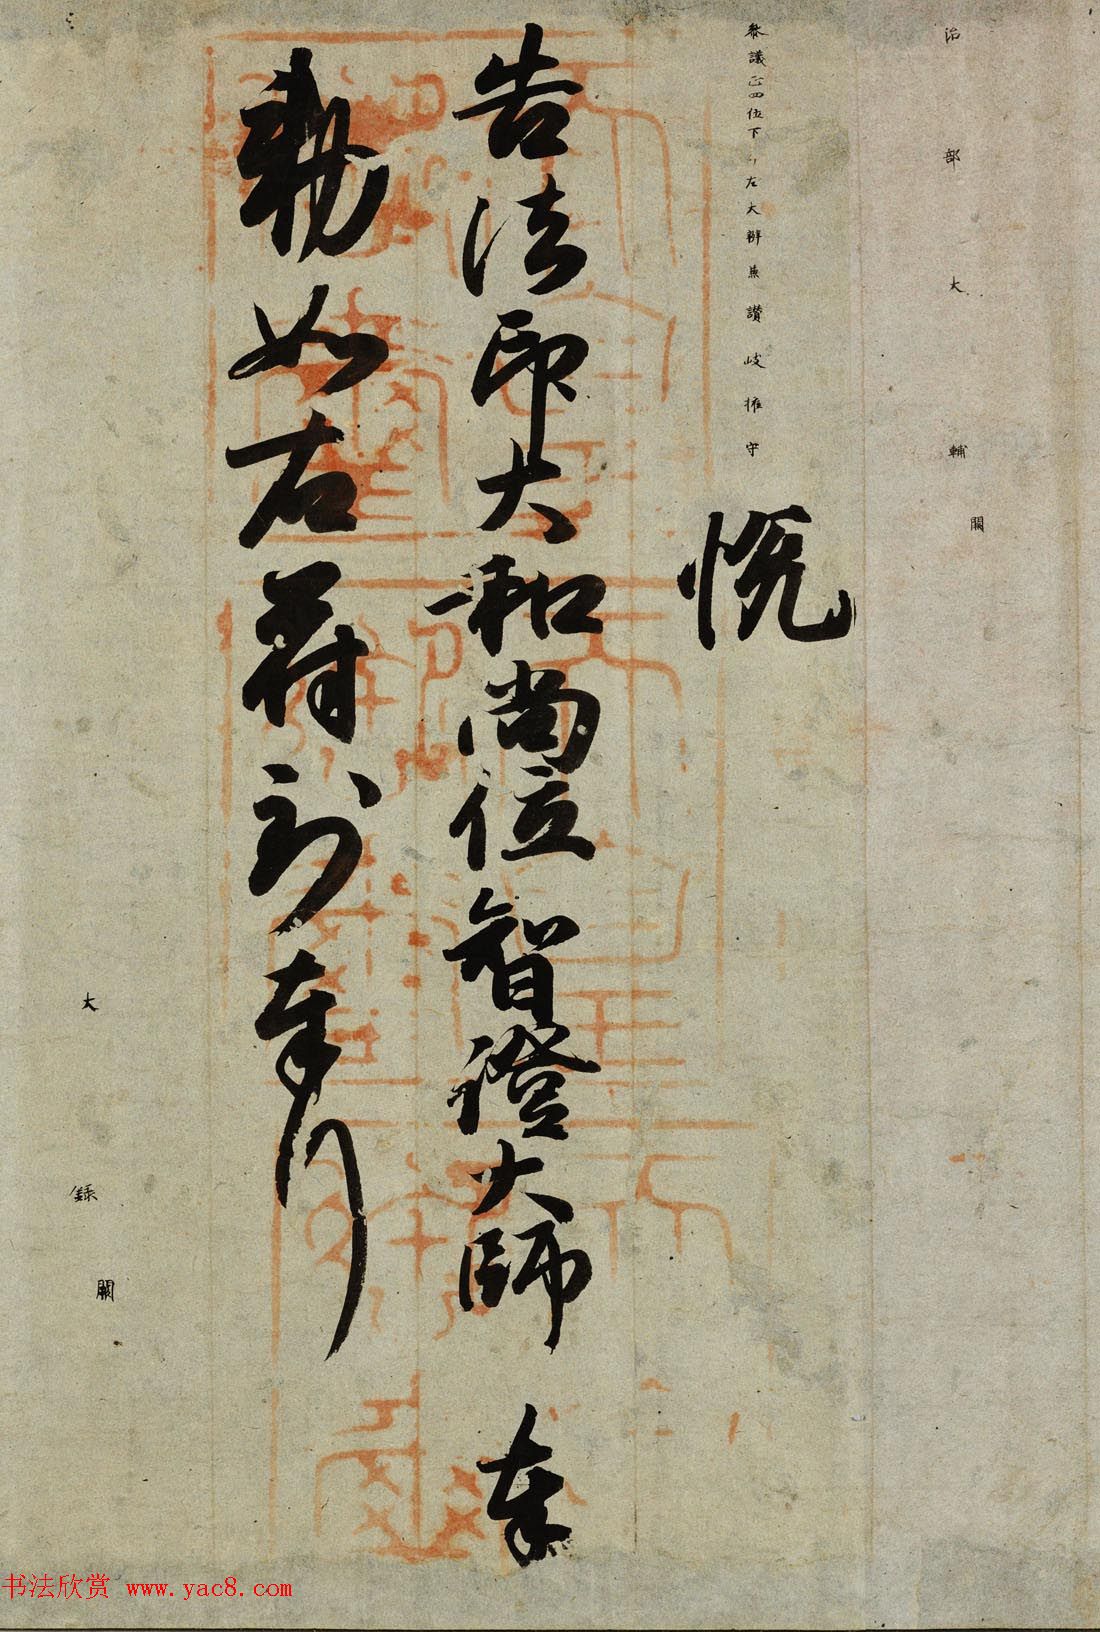 治部大輔闕
參議正四位下行左大辨兼讃岐權守
悦
告法印大和尚位智證大師 奉
勅如右符到奉行
大録闕
书法欣赏 www.yac8.com